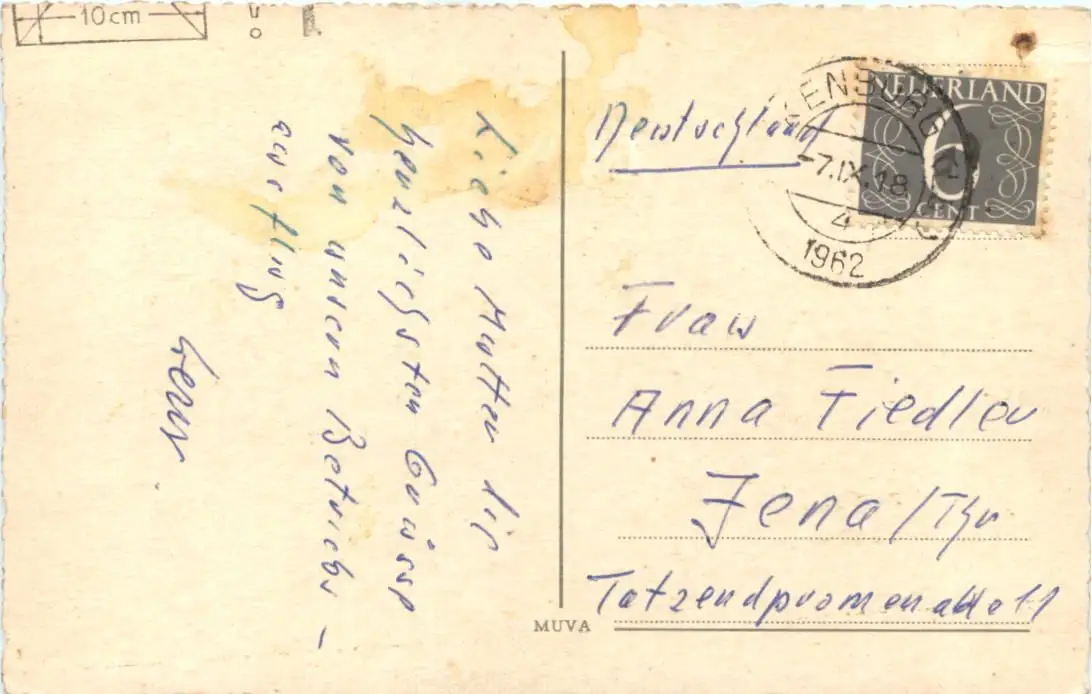 10cm
Liebe Mutter dir
herzlichsten Grüsse
von unserm Betriebs-
ausflug
Deutschland
NEDERLAND
6
CENT
ENBURG
-7.IX.18
4
1962
Frau
Anna Fiedler
Jena/Thür
Tatzendpromenade 11
MUVA